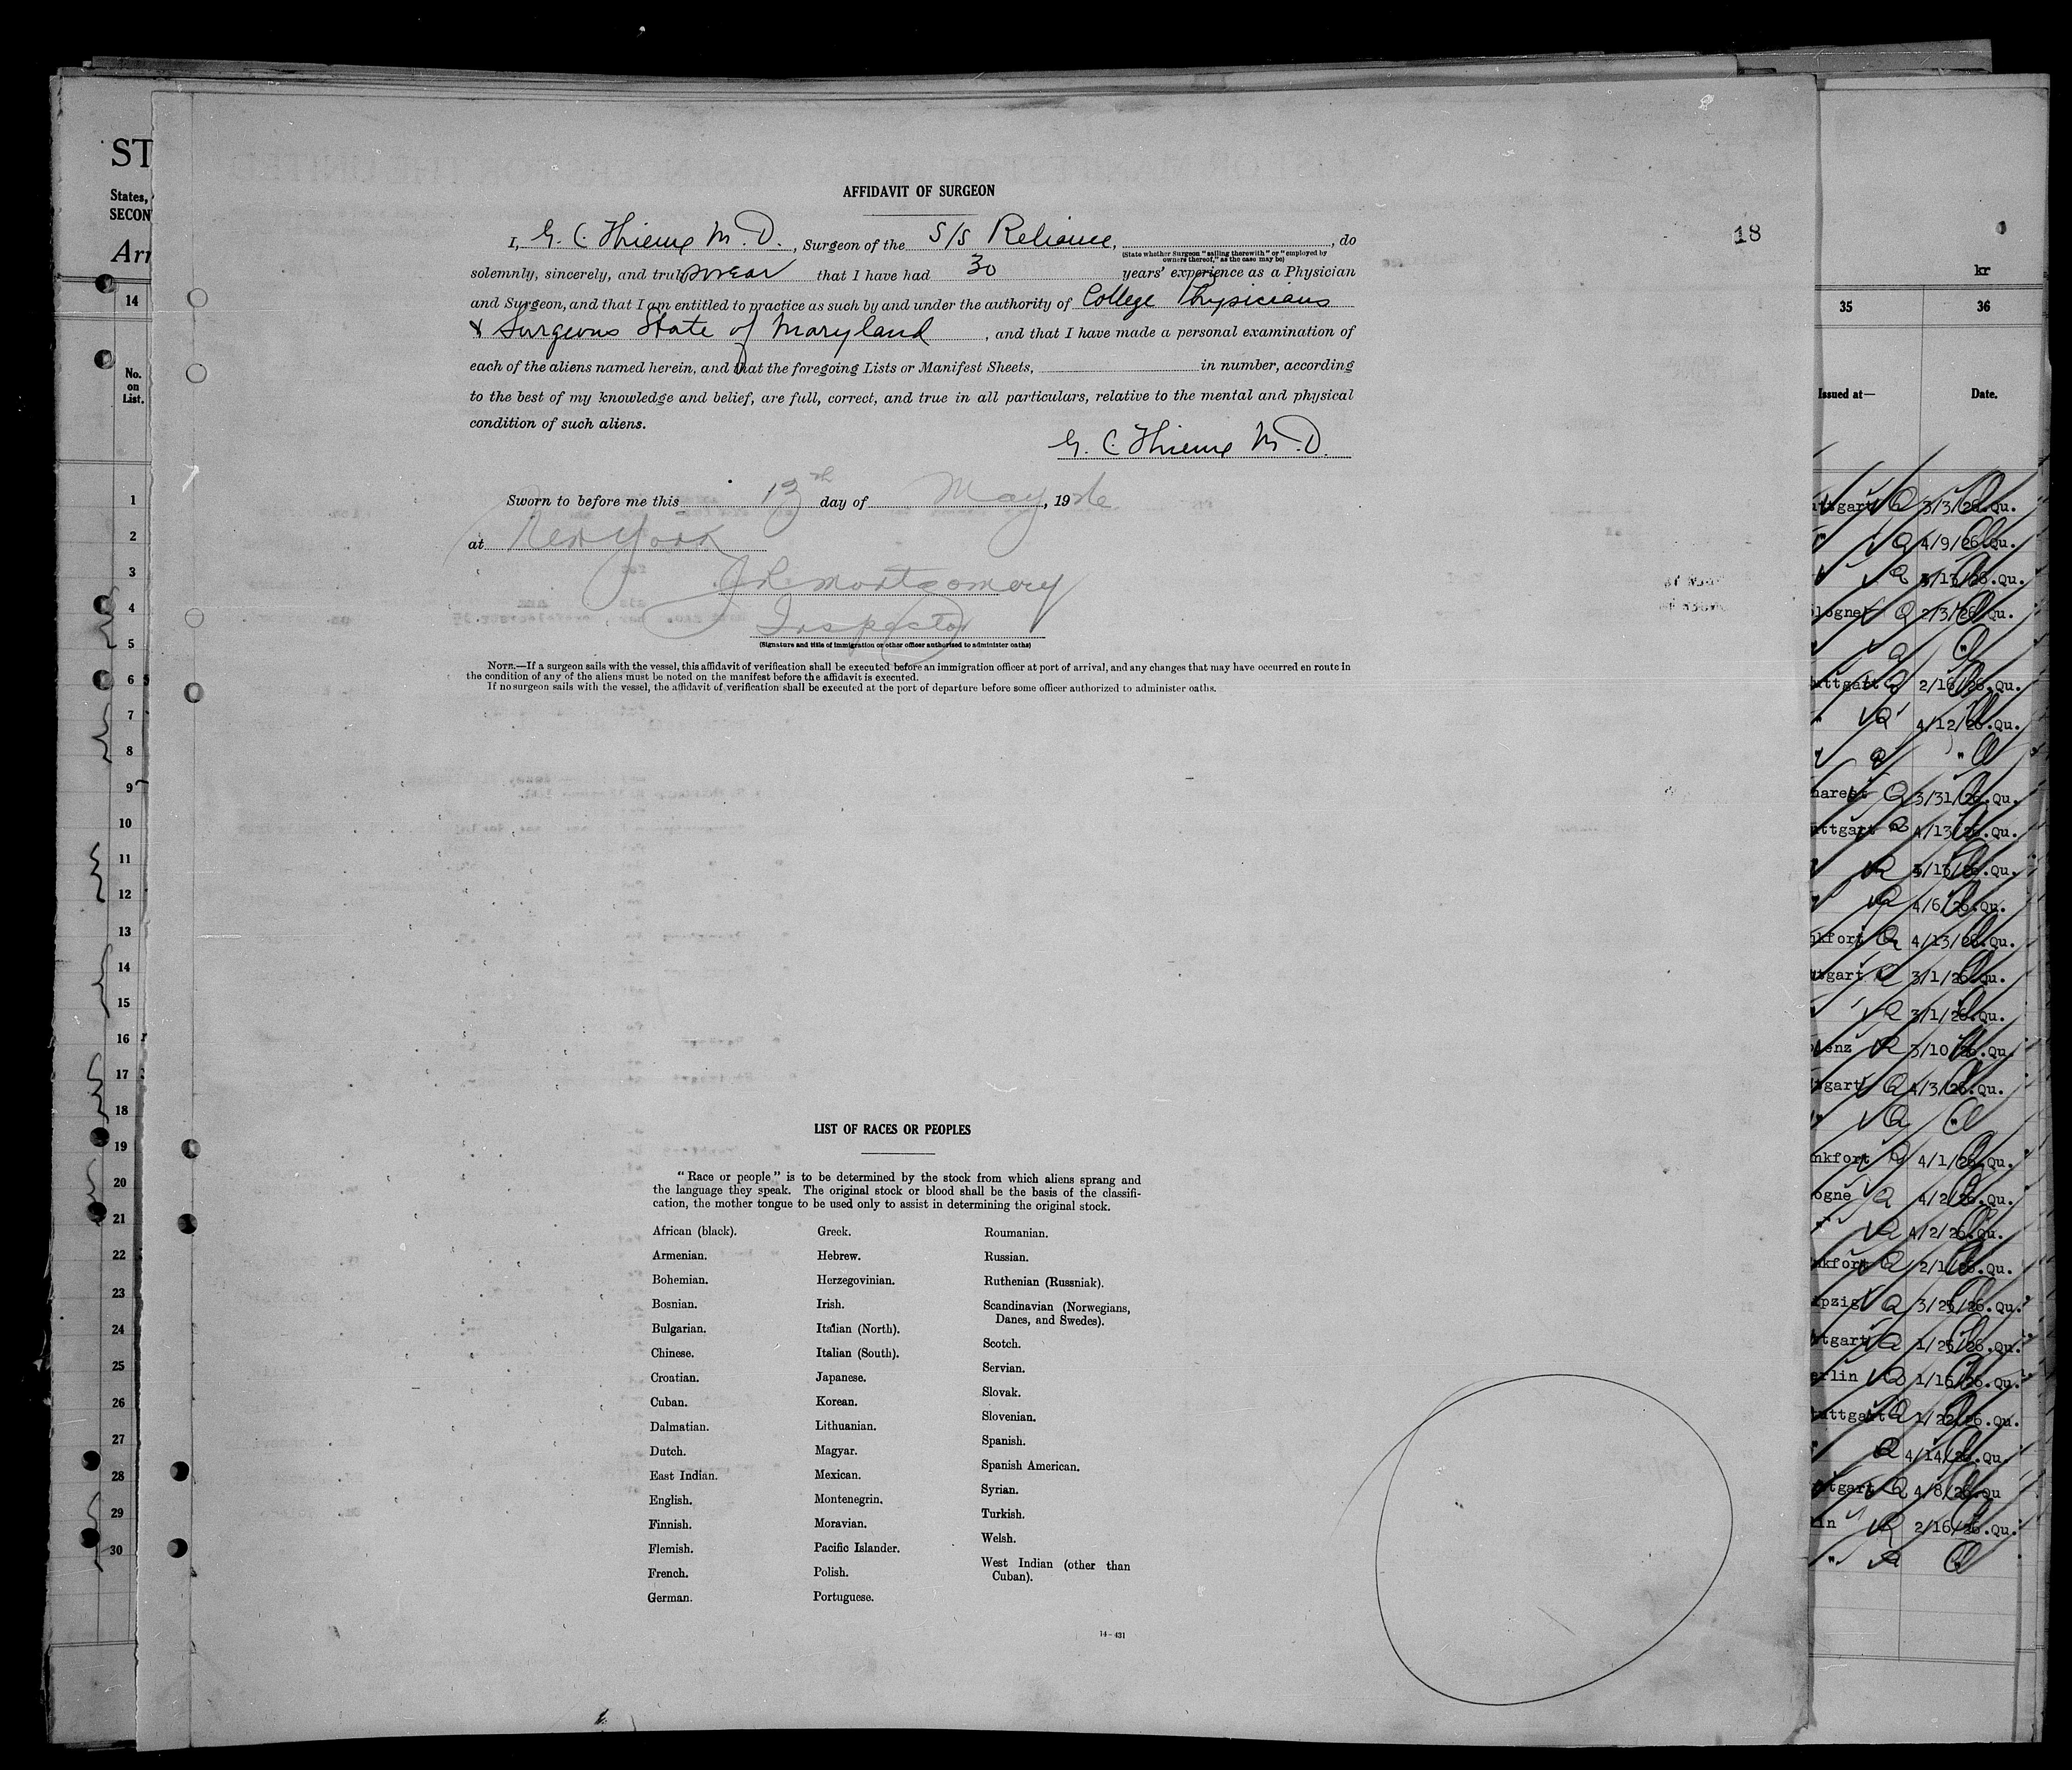 18
AFFIDAVIT OF SURGEON
I, G. C. Thieme M. D., Surgeon of the S/S Reliance, , do
(State whether Surgeon "sailing therewith" or "employed by
owners thereof," as the case may be)
solemnly, sincerely, and truly swear that I have had 30 years' experience as a Physician
and Surgeon, and that I am entitled to practice as such by and under the authority of College Physicians
& Surgeons State of Maryland, and that I have made a personal examination of
each of the aliens named herein, and that the foregoing Lists or Manifest Sheets, in number, according
to the best of my knowledge and belief, are full, correct, and true in all particulars, relative to the mental and physical
condition of such aliens.
G. C. Thieme M. D.
Sworn to before me this 13th day of May, 1926
at New York
Montgomery
Inspector
(Signature and title of immigration or other officer authorized to administer oaths)
NOTE.—If a surgeon sails with the vessel, this affidavit of verification shall be executed before an immigration officer at port of arrival, and any changes that may have occurred en route in
the condition of any of the aliens must be noted on the manifest before the affidavit is executed.
If no surgeon sails with the vessel, the affidavit of verification shall be executed at the port of departure before some officer authorized to administer oaths.
LIST OF RACES OR PEOPLES
"Race or people" is to be determined by the stock from which aliens sprang and
the language they speak. The original stock or blood shall be the basis of the classifi-
cation, the mother tongue to be used only to assist in determining the original stock.
African (black).
Armenian.
Bohemian.
Bosnian.
Bulgarian.
Chinese.
Croatian.
Cuban.
Dalmatian.
Dutch.
East Indian.
English.
Finnish.
Flemish.
French.
German.
Greek.
Hebrew.
Herzegovinian.
Irish.
Italian (North).
Italian (South).
Japanese.
Korean.
Lithuanian.
Magyar.
Mexican.
Montenegrin.
Moravian.
Pacific Islander.
Polish.
Portuguese.
Roumanian.
Russian.
Ruthenian (Russniak).
Scandinavian (Norwegians,
Danes, and Swedes).
Scotch.
Servian.
Slovak.
Slovenian.
Spanish.
Spanish American.
Syrian.
Turkish.
Welsh.
West Indian (other than
Cuban).
14-431
ST
States,
SECON
Arr
14
No.
on
List.
1
2
3
4
5
6
7
8
9
10
11
12
13
14
15
16
17
18
19
20
21
22
23
24
25
26
27
28
29
30
kr
35 36
Issued at— Date.
ttgart 3/3/26.Qu.
4/9/26.Qu.
3/13/26.Qu.
logne 2/3/26.Qu.
"
uttgart 2/16/26.Qu.
4/12/26.Qu.
"
harest 3/31/26.Qu.
uttgart 4/13/26.Qu.
3/13/26.Qu.
4/6/26.Qu.
nkfort 4/13/26.Qu.
ttgart 3/1/26.Qu.
3/1/26.Qu.
lenz 3/10/26.Qu.
tgart 4/3/26.Qu.
"
nkfort 4/1/26.Qu.
ogne 4/2/26.Qu.
" 4/2/26.Qu.
nkfort 2/1/26.Qu.
ipzig 3/25/26.Qu.
ttgart 1/25/26.Qu.
erlin 1/15/26.Qu.
tuttgart 1/22/26.Qu.
" 4/14/26.Qu.
ttgart 4/8/26.Qu
lin 2/16/26.Qu.
" "